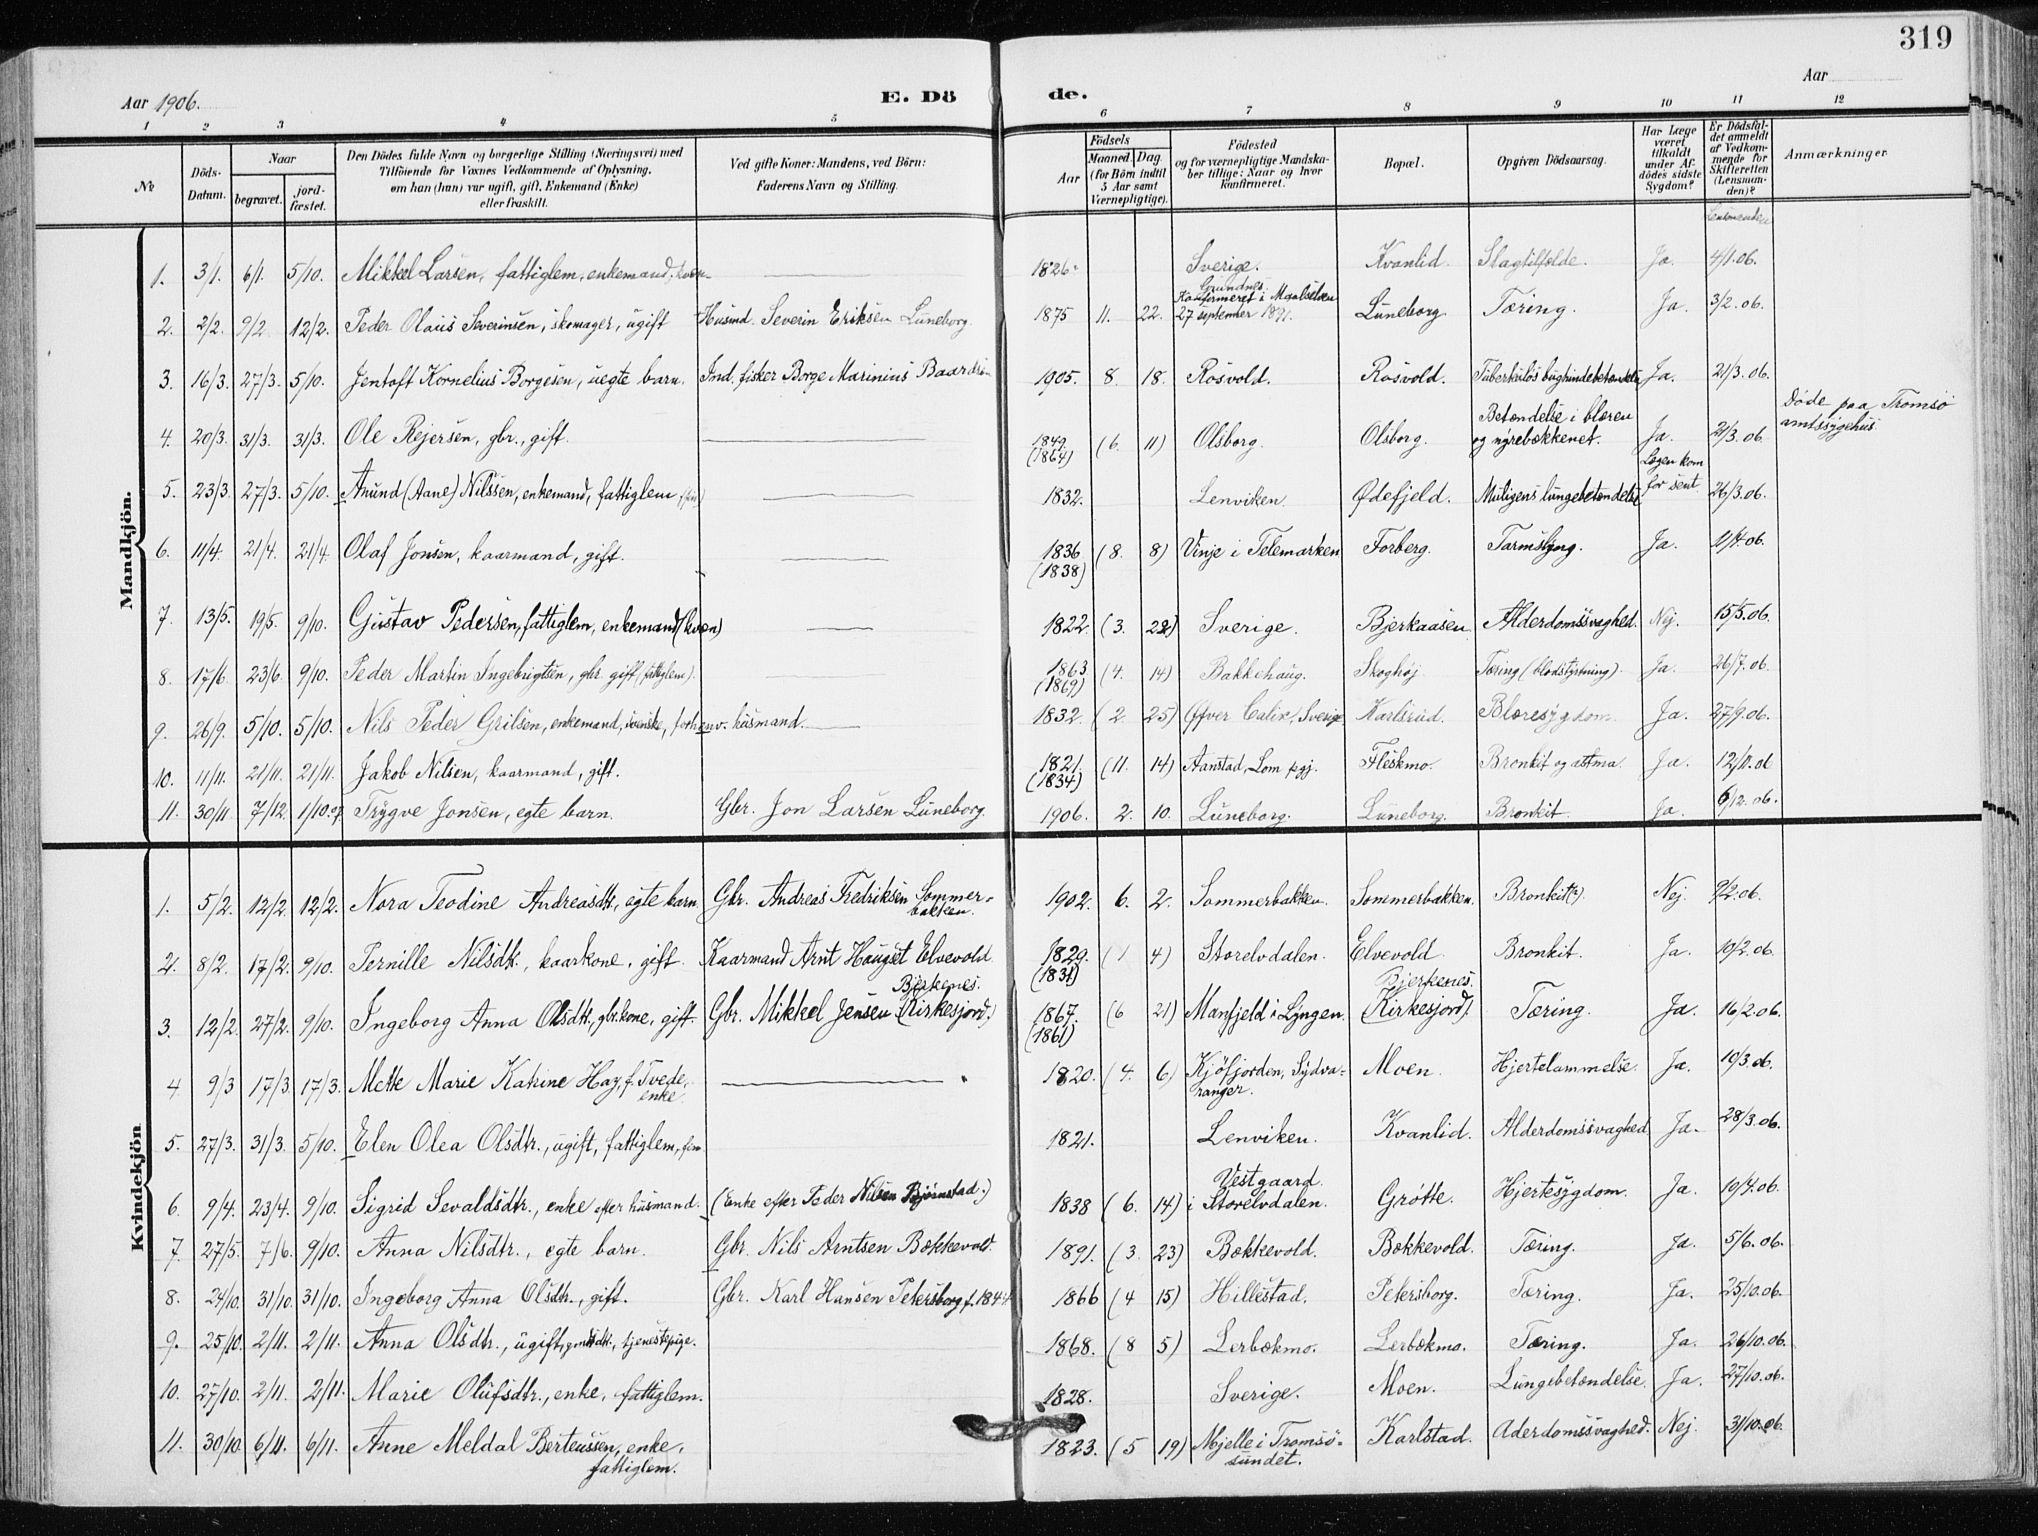 319
Aar 1906. E. Dö de. Aar
1 2 3 4 5 6 7 8 9 10 11 12
№ Döds-Datum. Naar begravet. jord-fæstet. Den Dödes fulde Navn og borgerlige Stilling (Næringsvei) med Tilföiende for Voxnes Vedkommende af Oplysning, om han (hun) var ugift, gift, Enkemand (Enke) eller fraskilt. Ved gifte Koner: Mandens, ved Börn: Faderens Navn og Stilling. Födsels Aar Maaned. Dag (for Börn indtil 5 Aar samt Værnepligtige). Födested og for værnepligtige Mandska-ber tillige: Naar og hvor konfirmeret. Bopæl. Opgiven Dödsaarsag. Har Læge været tilkaldt under Af-dödes sidste Sygdom? Er Dödsfal-det anmeldt af Vedkom-mende for Skifteretten (Lensman-den)? Anmærkninger
Lensmanden
Mandkjön.
1. 3/1. 6/1. 5/10. Mikkel Larsen, fattiglem, enkemand, kvæn 1826. Sverige. Kvanlid. Slagtilfelde. Ja. 4/1.06.
2. 2/2. 9/2 12/2. Peder Olaus Severinsen, skomager, ugift Husmd. Severin Eriksen Luneborg. 1875 11. 22. Grundnes. Konfirmeret i Maalselven 27 september 1891. Luneborg. Tæring. Ja. 3/2.06.
3. 16/3. 27/3. 5/10. Jentoft Kornelius Borgesen, uegte barn. Ind. fisker Borge Marinius Baardsen 1905. 8. 18. Rosvold. Rosvold. Tuberkuløs bughindebetændelse Ja. 21/3.06.
4. 20/3. 31/3. 31/3. Ole Rejersen, gbr., gift. 1849. (1864) (6. 11) Olsborg. Olsborg. Betændelse i blæren og nyrebækkenet. Ja. 21/3.06. Døde paa Tromsø amtssygehus
5. 23/3. 27/3. 5/10. Anund (Aane) Nilssen, enkemand, fattiglem 1832. Lenviken. Ødefjeld. Muligens lungebetændelse Lægen kom for sent. 26/3.06.
6. 11/4. 21/4. 21/4. Olaf Jonsen, kaarmand, gift. 1836 (1838) (8. 8) Vinje i Telemarken Forberg. Tarmslyng. Ja. 11/4.06.
7. 13/5. 19/5. 9/10. Gustav Pedersen, fattiglem, enkemand (kvæn) 1822. (3. 22) Sverige. Bjerkaasen. Alderdomssvaghed. Nej. 15/5.06.
8. 17/6. 23/6. 9/10. Peder Martin Ingebrigtsen, gbr. gift (fattiglem). 1863 (1869) (4. 14) Bakkehaug. Skoghøj Tæring (blodstyrtning). Ja. 26/7.06.
9. 26/9. 5/10. 5/10. Nils Peder Grilsen, enkemand, svenske, forhenv. husmand. 1832. (2. 25) Øfver Calix, Sverige Karlsrud. Blæresygdom. Ja. 27/9.06.
10. 11/11. 21/11. 21/11. Jakob Nilsen, kaarmand, gift. 1821. (1834) (11. 14) Aanstad, Lom pgj. Fleskmo. Bronkit og astma. Ja. 12/11.06
11. 30/11 7/12. 1/10.07. Trygve Jonsen, egte barn. Gbr. Jon Larsen Luneborg. 1906. 2. 10. Luneborg. Luneborg. Bronkit. Ja. 6/12.06.
Kvindekjön
1. 5/2. 12/2. 12/2. Nora Teodine Andreasdt., egte barn. Gbr. Andreas Fredriksen Sommer-bakken. 1902. 6. 2. Sommerbakken. Sommerbakken. Bronkit(?). Nej 9/2.06.
2. 8/2. 17/2. 9/10. Pernille Nilsdt., kaarkone, gift. Kaarmand Arnt Hauget Elvevold 1829. (1831) (1 4) Storelvdalen. Elvevold Bronkit. Ja. 10/2.06.
3. 12/2. 27/2. 9/10. Ingeborg Anna Olsdt., gbr.kone, gift. Gbr. Mikkel Jensen Bjerkenes. (Kirkesjord.) 1867. (1861) (6 21) Manfjeld i Lyngen. Bjerkenes. (Kirkesjord). Tæring. Ja. 16/2.06.
4 9/3 17/3 17/3. Mette Marie Katrine Hay, f. Tvede, enke. 1820. (4. 6) Kjøfjorden, Sydva-ranger. Moen. Hjertelammelse. Ja. 10/3.06.
5. 27/3. 31/3. 5/10. Elen Olea Olsdtr., ugift, fattiglem, 1821. Lenviken. Kvanlid. Alderdomssvaghed Ja. 28/3.06.
6. 9/4. 23/4. 9/10. Sigrid Sevaldsdtr., enke efter husmand. (Enke efter Peder Nilsen Bjørnstad.) 1838 (6. 14) Vestgaard i Storelvdalen. Grøtte. Hjertesygdom. Ja. 10/4.06.
7. 27/5. 7/6. 9/10. Anna Nilsdtr., egte barn. Gbr. Nils Arntsen Bækkevold. 1891. (3. 23) Bækkevold. Bækkevold. Tæring. Ja. 5/6.06.
8. 24/10. 31/10. 31/10. Ingeborg Anna Olsdtr., gift. Gbr. Karl Hansen Petersborg f. 1844 1866 (4 15) Hillestad. Petersborg. Tæring. Ja. 25/10.06.
9. 25/10. 2/11. 2/11. Anna Olsdtr., ugift, tjenestepige. 1868. (8 5) Lerbækmo. Lerbækmo. Tæring. Ja. 26/10.06.
10. 27/10. 2/11. 2/11. Marie Olufsdtr., enke, fattiglem. 1828. Sverige. Moen. Lungebetændelse. Ja. 27/10.06.
11. 30/10. 6/11. 6/11. Anne Meldal Berteussen, enke, fattiglem. 1823. (5 19) Mjelle i Tromsø-sundet. Karlstad. Aderdomssvaghed. Nej. 31/10.06.